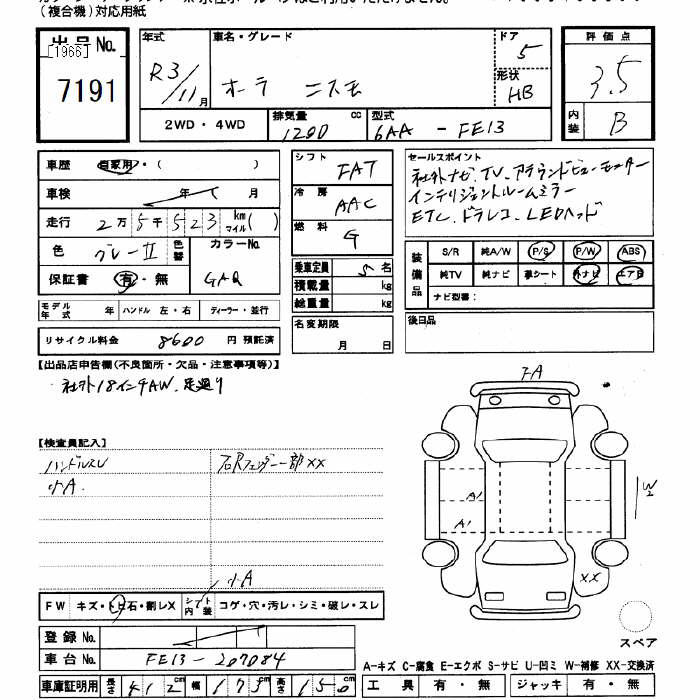 (複合機)対応用紙
出品No.
[1966]
7191
年式 R3/11月
車名・グレード オーラ ニスモ
ドア 5
形状 HB
評価点 3.5
内装 B
2WD・4WD
排気量 1200 cc
型式 6AA - FE13
車歴 自家用・( )
車検 年 月
走行 2万5千523 km マイル( )
色 グレーII 色替 カラーNo. GAQ
保証書 有・無
シフト FAT
冷房 AAC
燃料 G
乗車定員 5名
積載量 kg
総重量 kg
セールスポイント
社外ナビ、TV、アラウンドビューモニター
インテリジェントルームミラー
ETC、ドラレコ、LEDヘッド
装備品 S/R 純A/W P/S P/W ABS
純TV 純ナビ 革シート 外ナビ エアB
ナビ型番:
モデル年式 年 ハンドル 左・右 ディーラー・並行
名変期限 月 日
後日品
リサイクル料金 8600 円 預託済
【出品店申告欄(不良箇所・欠品・注意事項等)】
社外18インチAW、
【検査員記入】
ハンドルスレ
小A.
右Rフェンダー一部XX
小A
FW キズ・トビ石・割レX シート内装 コゲ・穴・汚レ・シミ・破レ・スレ
登録No.
車台No. FE13-207084
車庫証明用 長さ 412cm 幅 173cm 高さ 150cm
FA
A1
A1
W2
XX
スペア
A-キズ C-腐食 E-エクボ S-サビ U-凹ミ W-補修 XX-交換済
工具 有・無 ジャッキ 有・無